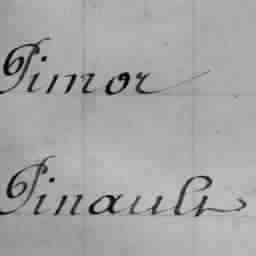 Pimor
Pinault